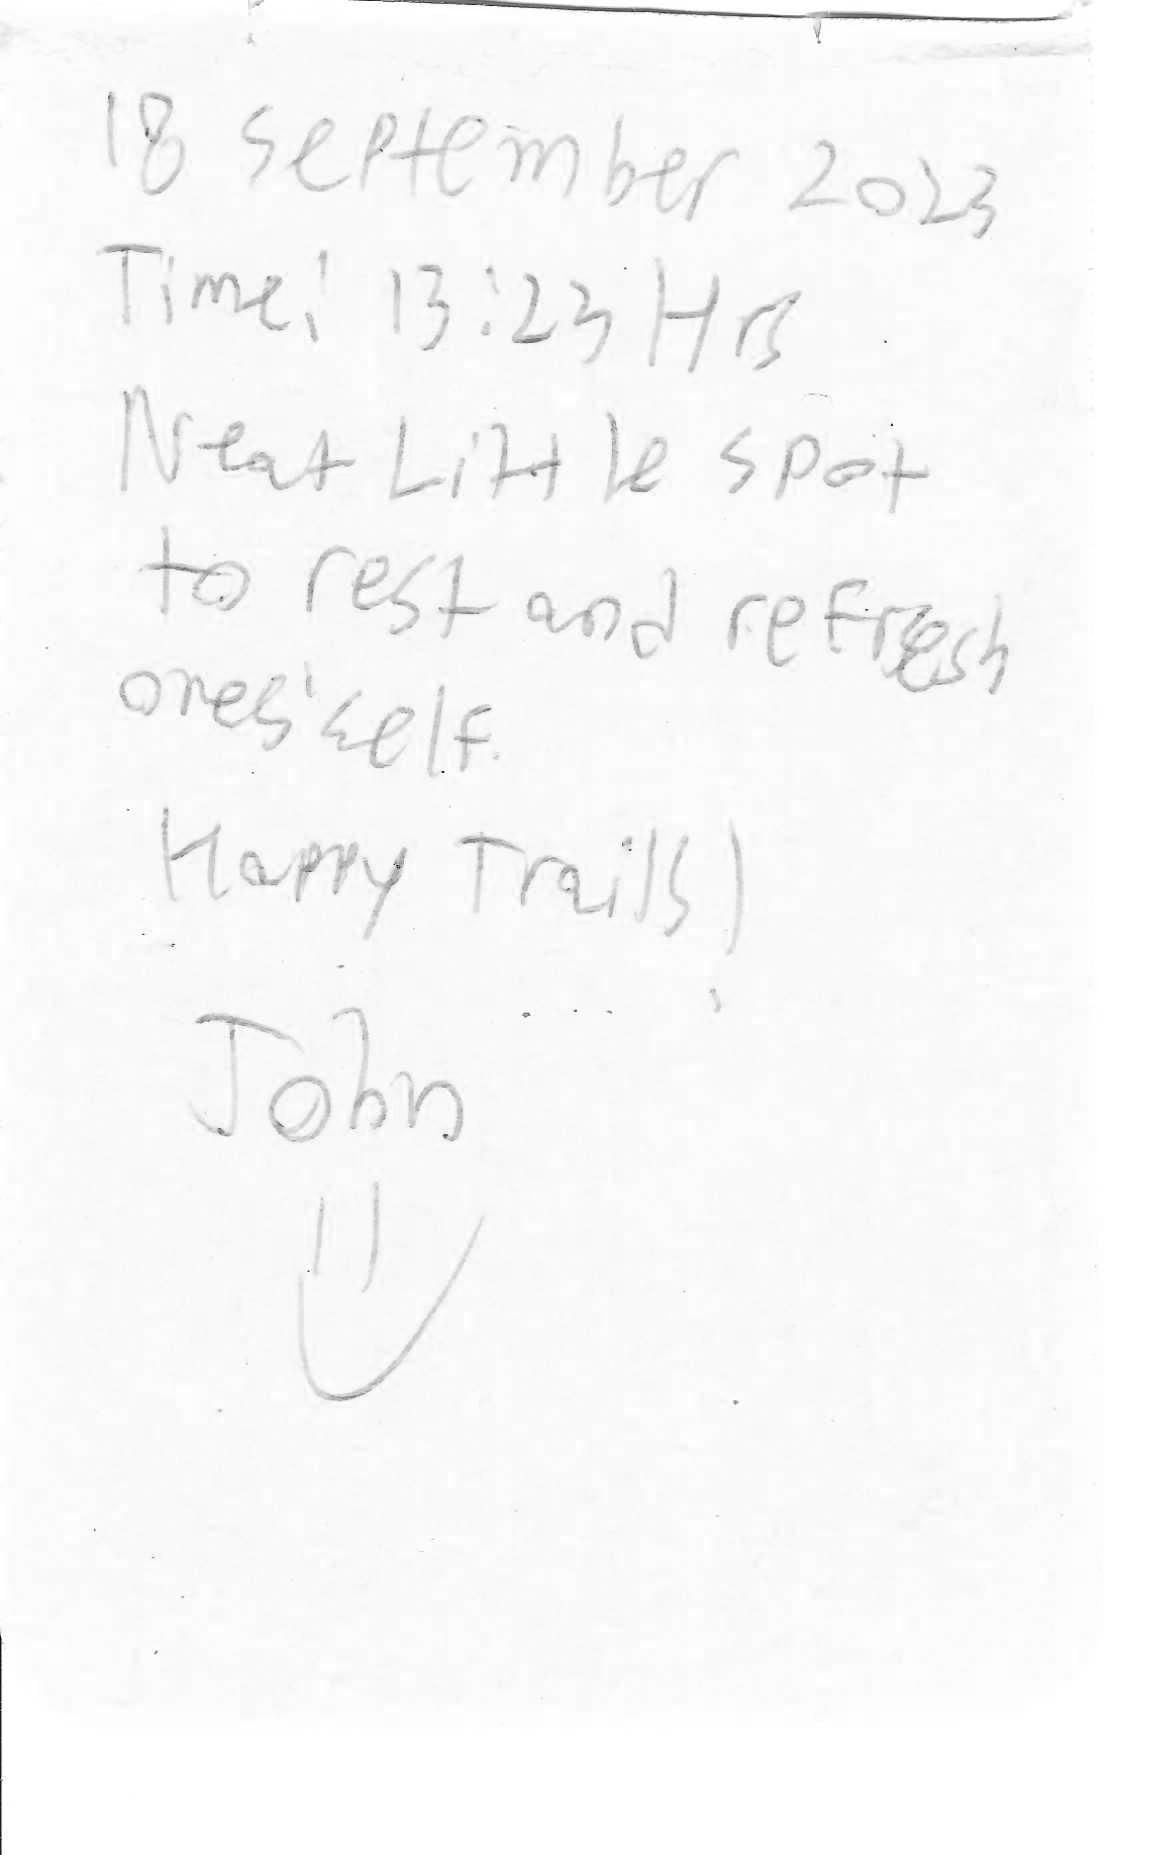 18 September 2023
Time: 13:23 Hrs
Neat Little spot
to rest and refresh
ones'self.
Happy Trails!
John